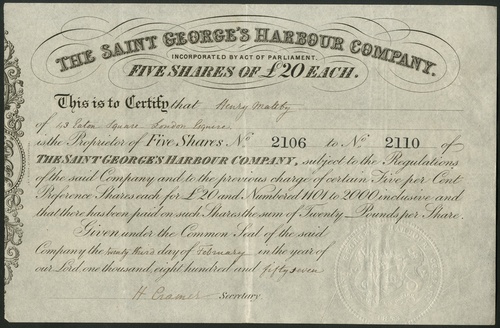 THE SAINT GEORGE'S HARBOUR COMPANY.
INCORPORATED BY ACT OF PARLIAMENT.
FIVE SHARES OF £20 EACH.
This is to Certify that Henry Maltby
of 43 Eaton Square London Esquire
is the Proprietor of FIVE SHARES Nº 2106 to Nº 2110 of
THE SAINT GEORGE'S HARBOUR COMPANY, subject to the Regulations
of the said Company and to the previous charge of certain Five per Cent
Preference Shares each for £20 and Numbered 1401 to 2000 inclusive and
that there has been paid on such Shares the sum of Twenty Pounds per Share.
Given under the Common Seal of the said
Company the twenty third day of February in the year of
our Lord one thousand, eight hundred and fifty seven
H. Cramer Secretary.